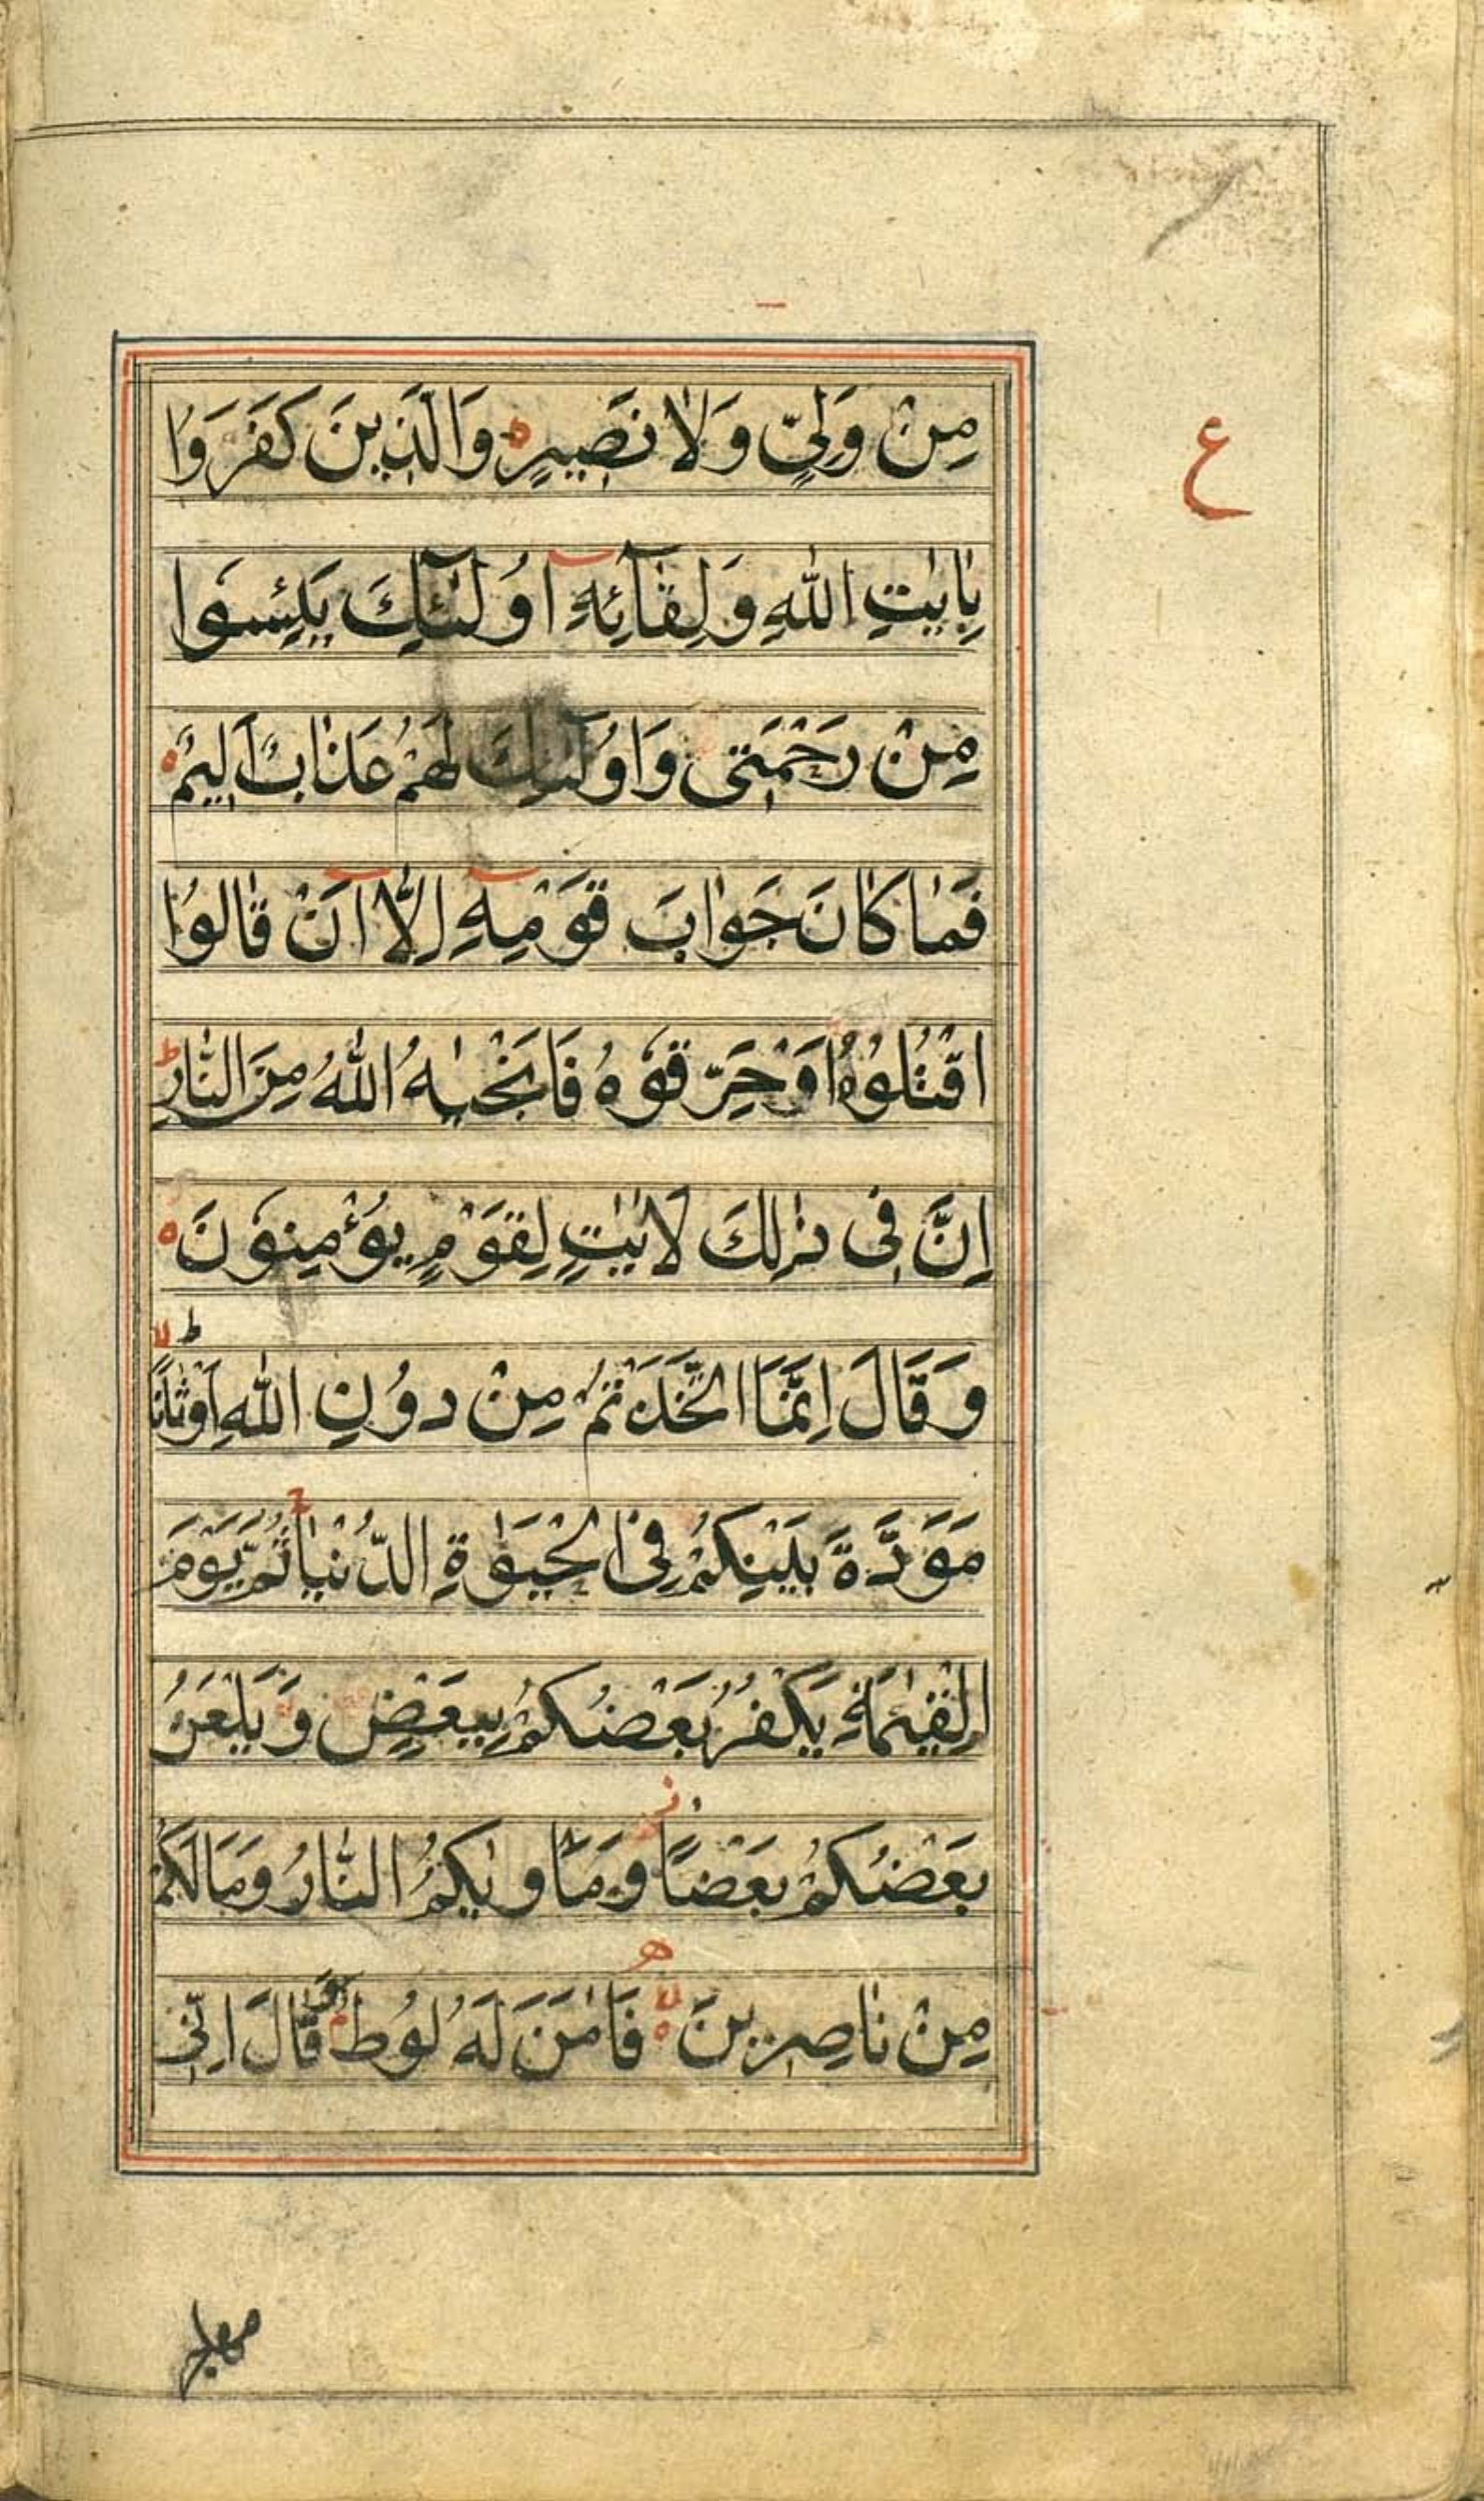 ع
مِنْ وَلِیٍّ وَلَا نَصِیْرٍ ہ وَالَّذِیْنَ كَفَرُوْا
بِاٰیٰتِ اللّٰهِ وَلِقَآئِهٖٓ اُولٰٓئِكَ یَئِسُوْا
مِنْ رَحْمَتِیْ وَاُولٰٓئِكَ لَهُمْ عَذَابٌ اَلِیْمٌ ہ
فَمَا كَانَ جَوَابَ قَوْمِهٖٓ اِلَّآ اَنْ قَالُوْا
اقْتُلُوْهُ اَوْ حَرِّقُوْهُ فَاَنْجٰىهُ اللّٰهُ مِنَ النَّارِ ط
اِنَّ فِیْ ذٰلِكَ لَاٰیٰتٍ لِقَوْمٍ یُؤْمِنُوْنَ ہ
وَقَالَ اِنَّمَا اتَّخَذْتُمْ مِنْ دُوْنِ اللّٰهِ اَوْثَانًا ط لا
مَوَدَّةَ بَیْنِكُمْ فِی الْحَیٰوةِ الدُّنْیَا ج ثُمَّ یَوْمَ
الْقِیٰمَةِ یَكْفُرُ بَعْضُكُمْ بِبَعْضٍ وَیَلْعَنُ
بَعْضُكُمْ بَعْضًا ز وَمَاْوٰىكُمُ النَّارُ وَمَا لَكُمْ
مِنْ نَاصِرِیْنَ ہ لا فَاٰمَنَ لَهٗ لُوْطٌ م وَقَالَ اِنِّیْ
مهاجر